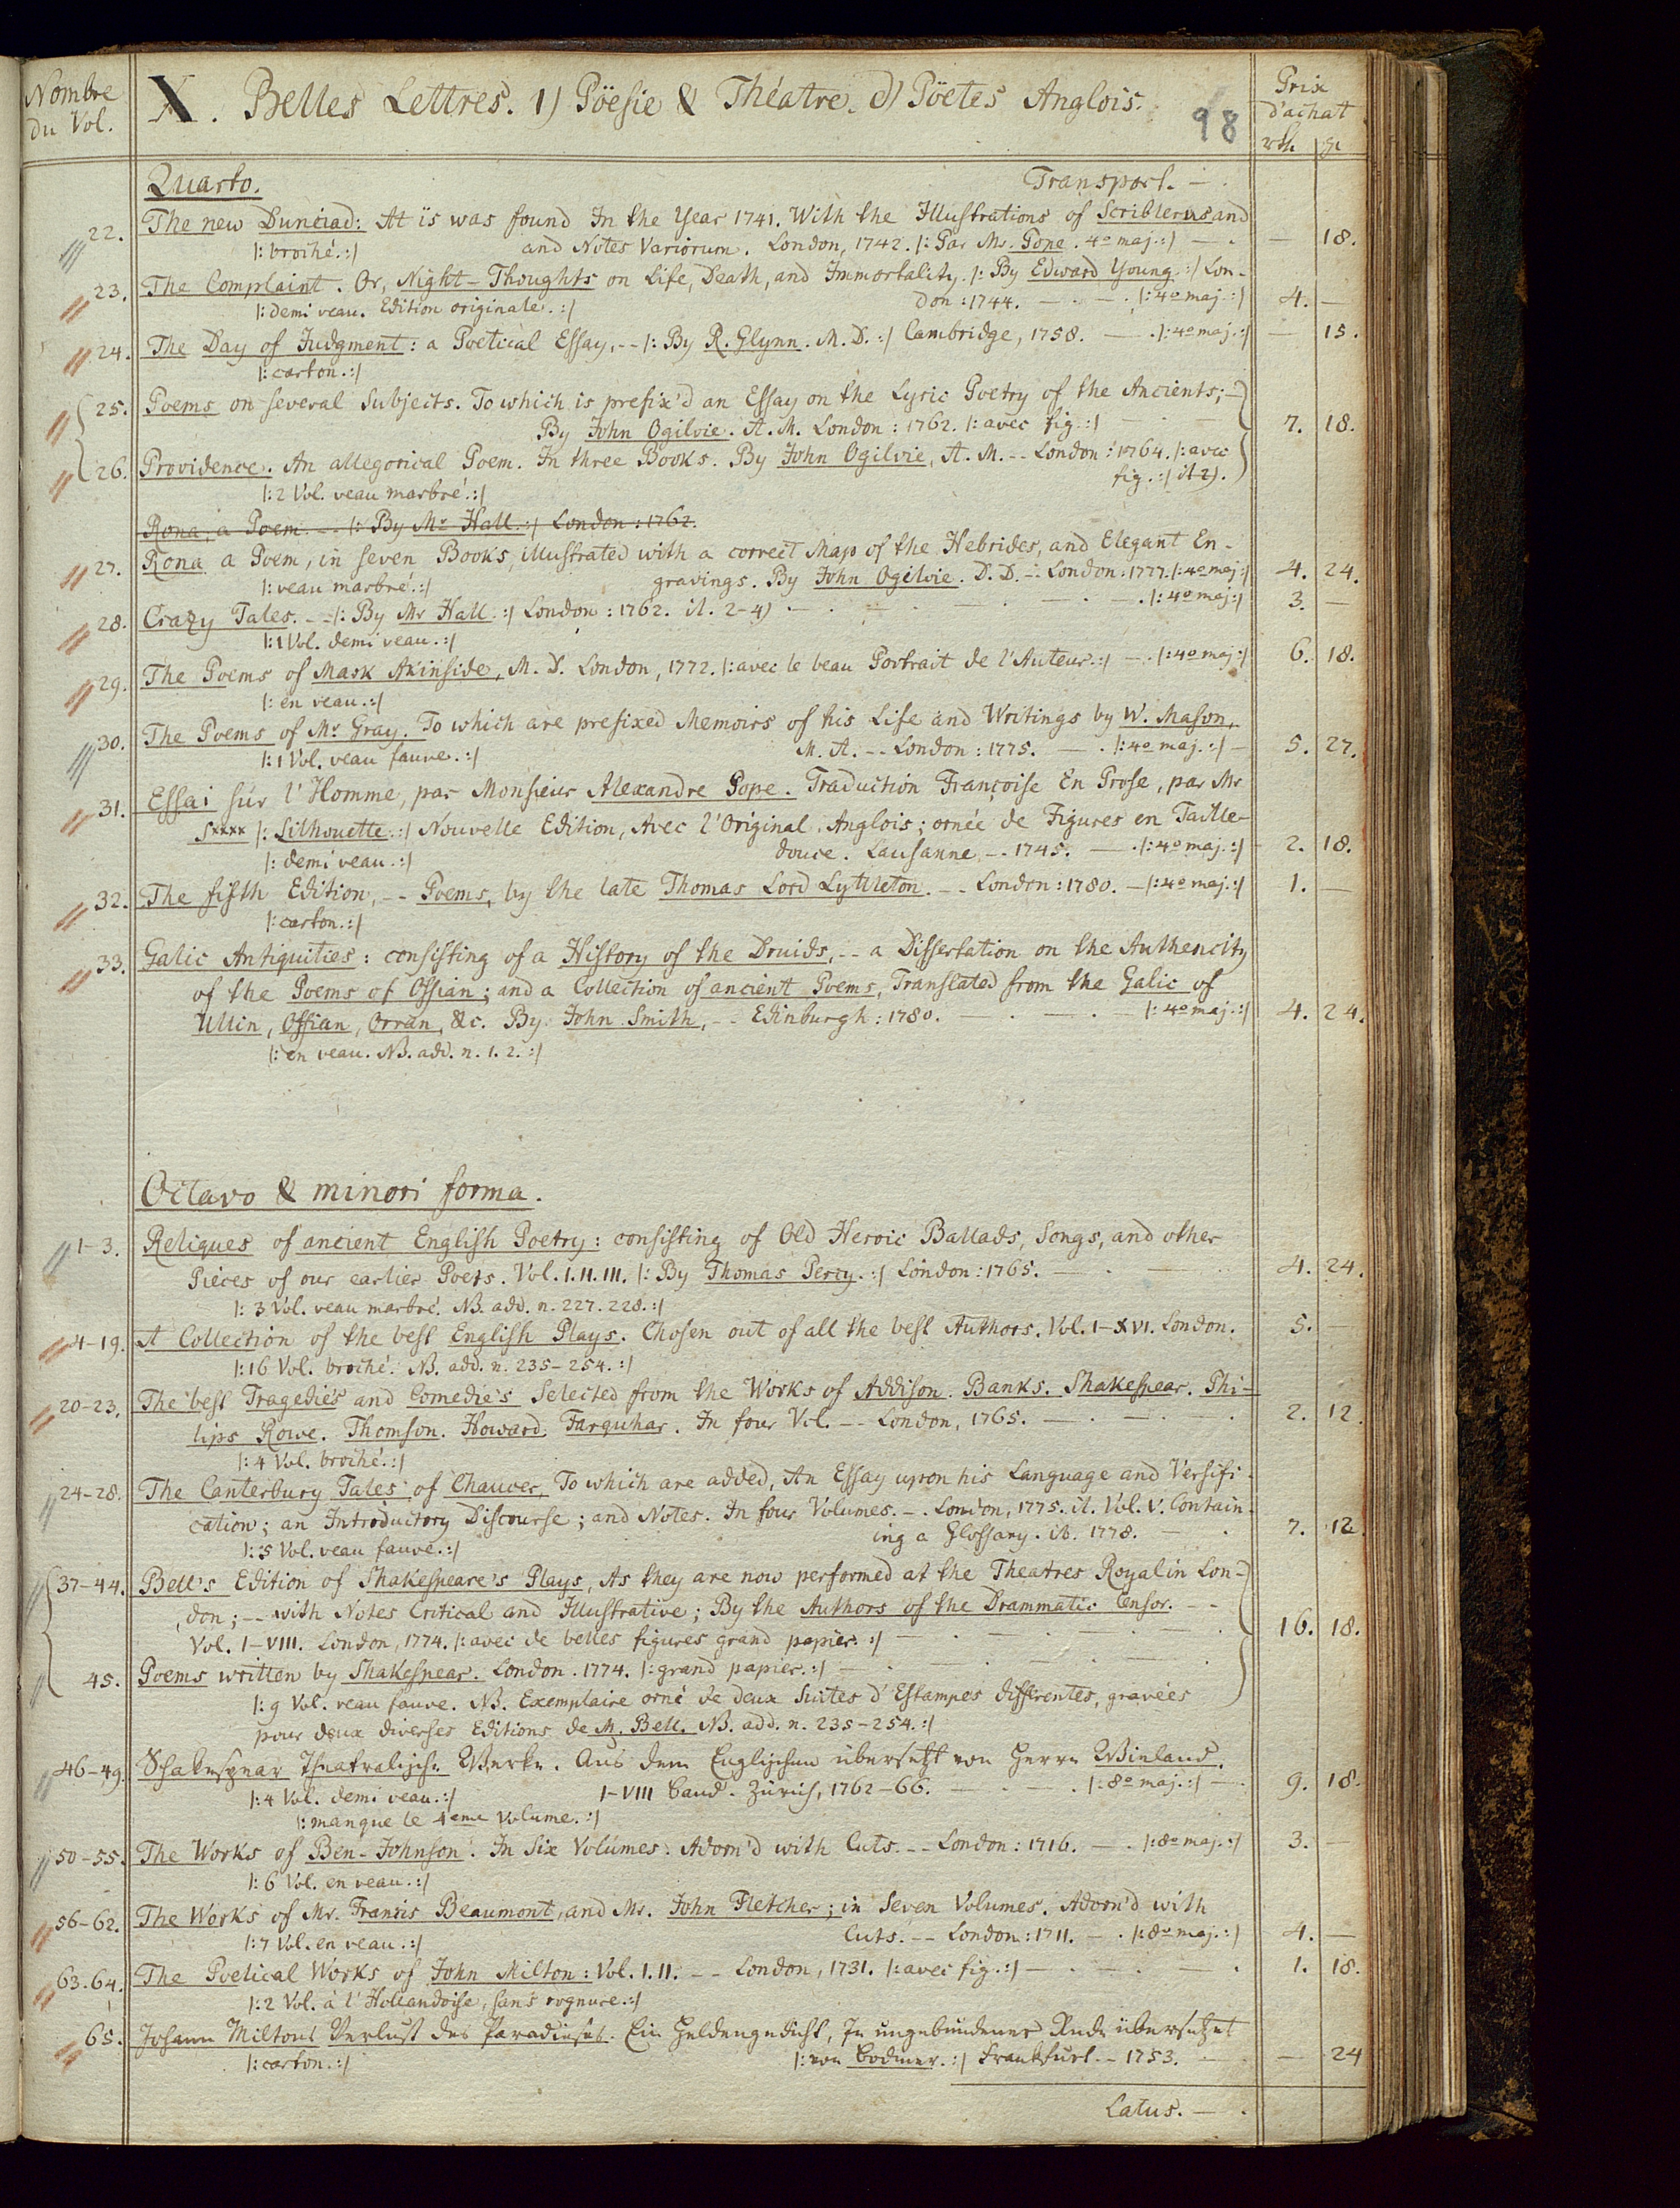 Nombre du Vol.
X. Belles Lettres. 1) Pöesie & Théatre. d) Pöetes Anglois.
98
Prix d'achat
rth gr
Quarto. Transport. — .
22. The new Dunciad: At iis was found In the Year 1741. With the Illustrations of Scriblerus and — 18.
|: broché. :| and Notes Variorum. London, 1742. |: Par Mr. Pope. 4o maj. :| — .
23. The Complaint. Or, Night-Thoughts on Life, Death, and Immortality. |: By Edward Young. :| Lon-
|: demi veau. Edition originale. :| don: 1744. — . — . |: 4o maj. :| 4. —
24. The Day of Judgment: a Poetical Essay, -- |: By R. Glynn. M. D. :| Cambridge, 1758. — . |: 4o maj. :| — 15.
|: carton. :|
25. Poems on several Subjects. To which is prefix'd an Essay on the Lyric Poetry of the Ancients; —
By John Ogilvie. A. M. London: 1762. |: avec fig. :| 7. 18.
26. Providence. An allegorical Poem. In three Books. By John Ogilvie, A. M. -- London: 1764. |: avec
|: 2 Vol. veau marbré. :| fig. :| it 2).
Rona, a Poem -- |: By Mr Hall. :| London: 1762.
27. Rona a Poem, in seven Books, illustrated with a correct Map of the Hebrides, and Elegant En-
|: veau marbré. :| gravings. By John Ogilvie. D. D. -- London: 1777. |: 4o maj :| 4. 24.
28. Crazy Tales. -- |: By Mr Hall. :| London: 1762. it. 2-4) — . — . — . |: 4o maj :| 3. —
|: 1 Vol. demi veau. :|
29. The Poems of Mark Akinside, M. D. London, 1772. |: avec le beau Portrait de l'Auteur. :| — . |: 4o maj :| 6. 18.
|: en veau. :|
30. The Poems of Mr Gray. To which are prefixed Memoirs of his Life and Writings by W. Mason,
|: 1 Vol. veau fauve. :| M. A. -- London: 1775. — . |: 4o maj. :| — 5. 27.
31. Essai sur l'Homme, par Monsieur Alexandre Pope. Traduction Françoise En Prose, par Mr
Sxxxx |: Silhouette. :| Nouvelle Edition, Avec l'Original Anglois; ornée de Figures en Taille-
|: demi veau. :| douce. Lausanne, -. 1745. — . |: 4o maj. :| 2. 18.
32. The fifth Edition, -- Poems, by the late Thomas Lord Lyttleton. -- London: 1780. — |: 4o maj. :| 1. —
|: carton. :|
33. Galic Antiquities: consisting of a History of the Druids, -- a Dissertation on the Authencity
of the Poems of Ossian; and a Collection of ancient Poems, Translated from the Galic of
Ullin, Ossian, Orran, &c. By John Smith, -- Edinburgh: 1780. — . — . — |: 4o maj. :| 4. 24.
|: en veau. NB. add. n. 1. 2. :|
Octavo & minori forma.
1-3. Reliques of ancient English Poetry: consisting of Old Heroic Ballads, Songs, and other
Pieces of our earlier Poets. Vol. I. II. III. |: By Thomas Percy. :| London: 1765. — . — 4. 24.
|: 3 Vol. veau marbré. NB. add. n. 227. 228. :|
4-19. A Collection of the best English Plays. Chosen out of all the best Authors. Vol. I-XVI. London. 5. —
|: 16 Vol. broché. NB. add. n. 235-254. :|
20-23. The best Tragedie's and Comedie's Selected from the Works of Addison. Banks. Shakespear. Phi-
lips Rowe. Thomson. Howard. Farquhar. In four Vol. -- London, 1765. — . — . 2. 12.
|: 4 Vol. broché. :|
24-28. The Canterbury Tales of Chaucer, To which are added, An Essay upon his Language and Versifi-
cation; an Introductory Discourse; and Notes. In four Volumes. -. London, 1775. it. Vol. V. Contain-
|: 5 Vol. veau fauve. :| ing a Glossary. ib. 1778. — . 7. 12.
37-44. Bell's Edition of Shakespeare's Plays, As they are now performed at the Theatres Royal in Lon-
don; -- with Notes Critical and Illustrative; By the Authors of the Drammatic Censor. --
Vol. I-VIII. London, 1774. |: avec de belles figures grand papier. :| — . — . — 16. 18.
45. Poems written by Shakespear. London. 1774. |: grand papier. :| — . — . — .
|: 9 Vol. veau fauve. NB. Exemplaire orné de deux Suites d'Estampes differentes, gravées
pour deux diverses Editions de M. Bell. NB. add. n. 235-254. :|
46-49. Schakespear Theatralische Werke. Aus dem Englischen übersetzt von Herrn Wieland.
|: 4 Vol. demi veau. :| I-VIII Band. Zürich, 1762-66. — . — . |: 8o maj. :| — . 9. 18.
|: manque le 4eme Volume. :|
50-55. The Works of Ben-Johnson. In Six Volumes. Adorn'd with Cuts. -- London: 1716. — . |: 8o maj. :| 3. —
|: 6 Vol. en veau. :|
56-62. The Works of Mr. Francis Beaumont, and Mr. John Fletcher; in Seven Volumes. Adorn'd with
|: 7 Vol. en veau. :| Cuts. -- London: 1711. — . |: 8o maj. :| 4. —
63. 64. The Poetical Works of John Milton: Vol. I. II. -- London, 1731. |: avec fig. :| — . — . — . 1. 18.
|: 2 Vol. à l'Hollandoise, sans rognure. :|
65. Johann Miltons Verlust des Paradieses. Ein Heldengedicht, In ungebundener Rede übersetzet
|: carton. :| |: von Bodmer. :| Frankfurt -- 1753. — . — 24
Latus. — .